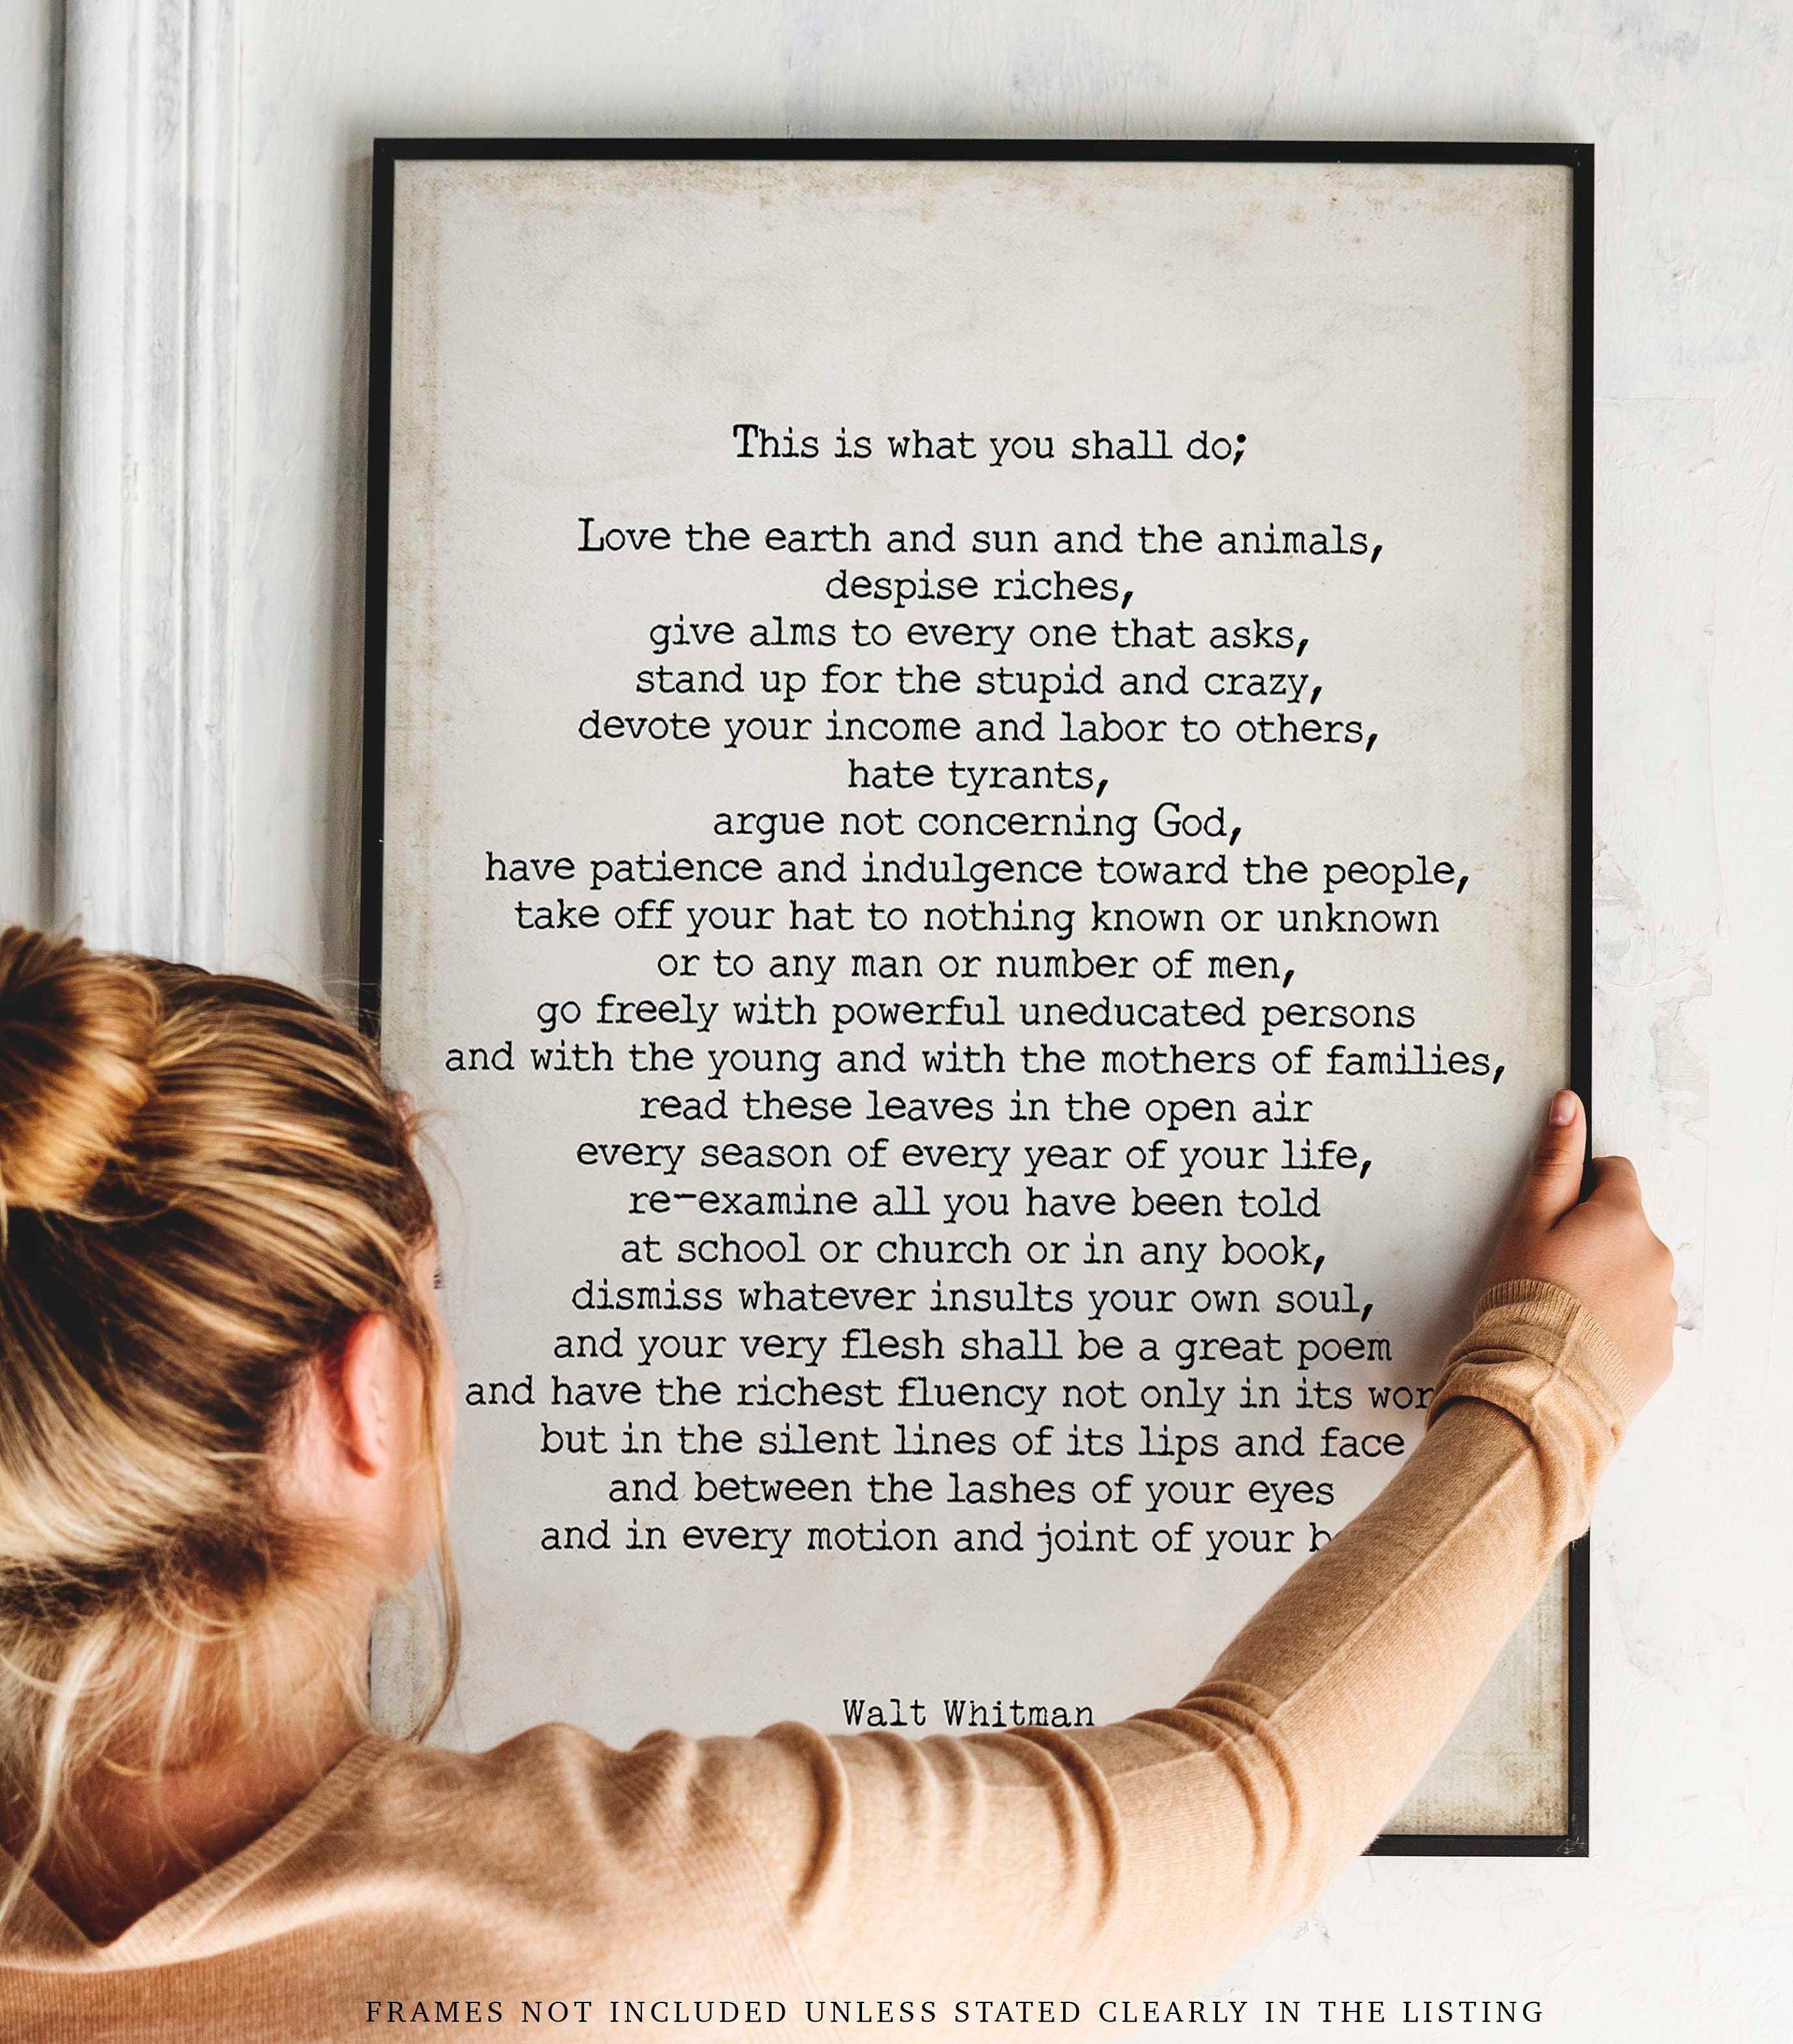 This is what you shall do;
Love the earth and sun and the animals,
despise riches,
give alms to every one that asks,
stand up for the stupid and crazy,
devote your income and labor to others,
hate tyrants,
argue not concerning God,
have patience and indulgence toward the people,
take off your hat to nothing known or unknown
or to any man or number of men,
go freely with powerful uneducated persons
and with the young and with the mothers of families,
read these leaves in the open air
every season of every year of your life,
re-examine all you have been told
at school or church or in any book,
dismiss whatever insults your own soul,
and your very flesh shall be a great poem
and have the richest fluency not only in its
but in the silent lines of its lips and face
and between the lashes of your eyes
and in every motion and joint of your
Walt Whitman
FRAMES NOT INCLUDED UNLESS STATED CLEARLY IN THE LISTING